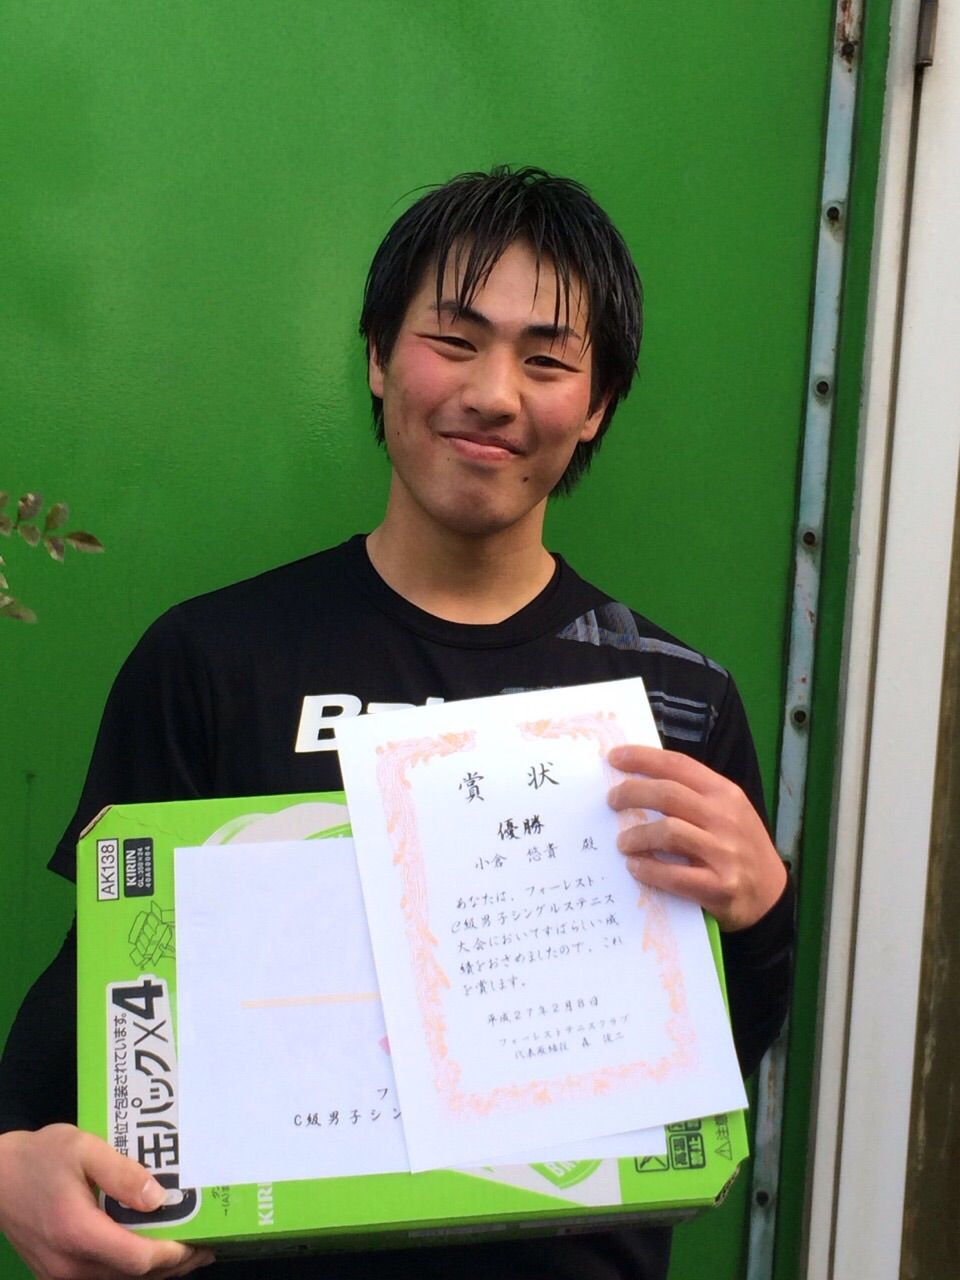 賞 状
優勝
小倉 悠貴 殿
あなたは、フォーレスト・
C級男子シングルステニス
大会においてすばらしい成
績をおさめましたので、これ
を賞します。
平成27年2月8日
フォーレストテニスクラブ
代表取締役 森 俊二
AK138
KIRIN
缶パック×4
缶単位で包装されています。
フ
C級男子シン
KIRIN
高温
禁止
注意